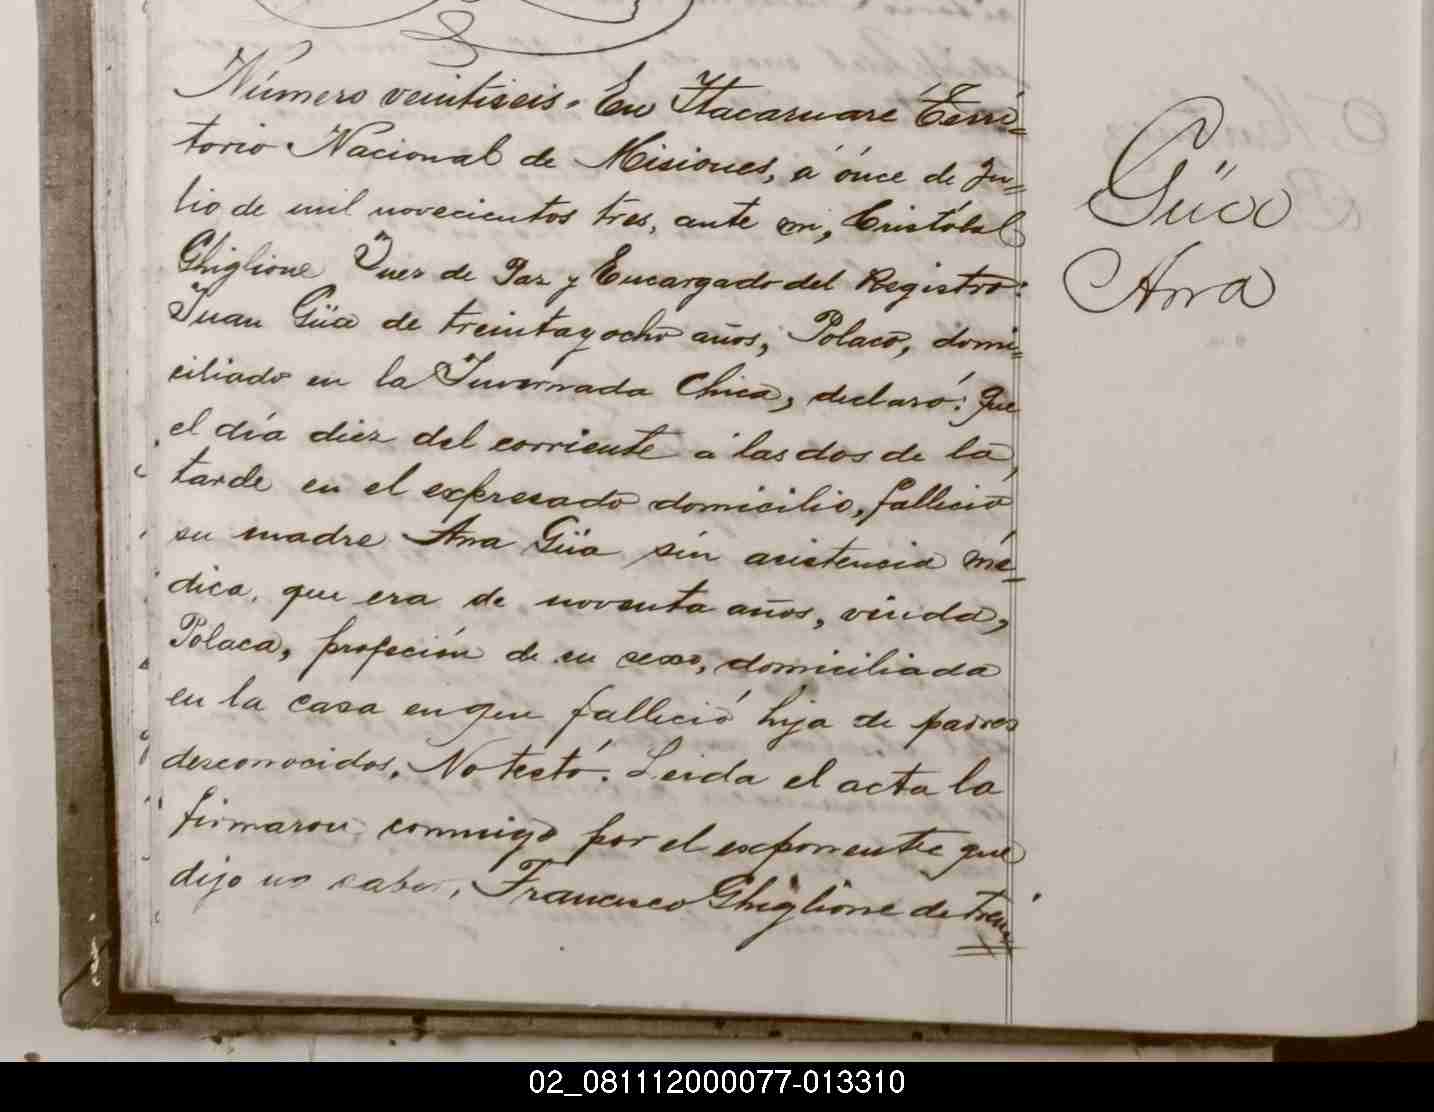 Número veintiseis. En Itacaruaré Terri-
torio Nacional de Misiones, á ónce de Ju-
lio de mil novecientos tres, ante mi, Cristóbal
Ghiglione Juez de Paz y Encargado del Registro:
Juan Güa de treintayocho años, Polaco, domi-
ciliado en la Invernada Chica, declaró: Que
el día diez del corriente á las dos de la
tarde en el expresado domicilio, falleció
su madre Ana Güa sin asistencia mé-
dica, que era de noventa años, viuda,
Polaca, profeción de su sexo, domiciliada
en la casa en que falleció hija de padres
desconocidos. No testó. Leida el acta la
firmaron conmigo por el exponente que
dijo no saber, Francisco Ghiglione de trein
Güa
Ana
02_081112000077-013310